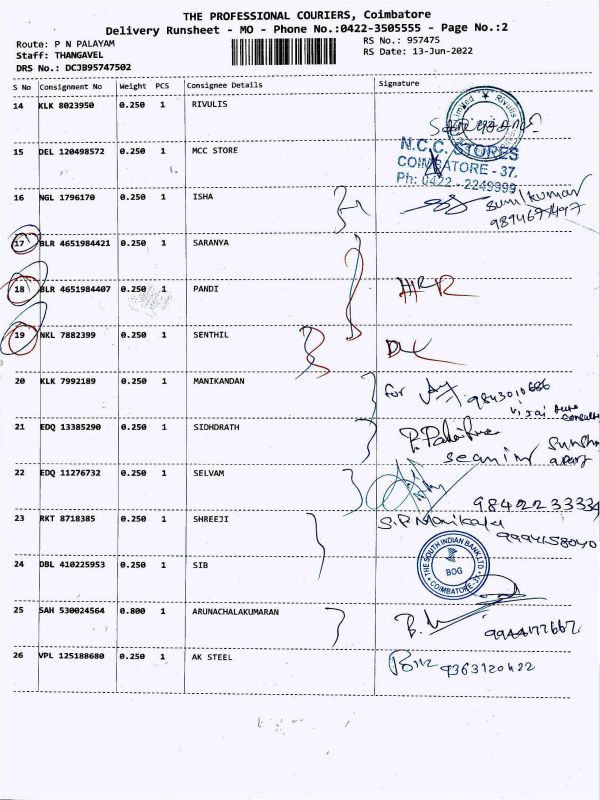 THE PROFESSIONAL COURIERS, Coimbatore
Delivery Runsheet - MO - Phone No.:0422-3505555 - Page No.:2
Route: P N PALAYAM
Staff: THANGAVEL
DRS No.: DCJB95747502
RS No.: 957475
RS Date: 13-Jun-2022
S No Consignment No Weight PCS Consignee Details Signature
14 KLK 8023950 0.250 1 RIVULIS
Limited ★ Rivulis
15 DEL 120498572 0.250 1 MCC STORE
N.C.C. STORES
COIMBATORE - 37.
Ph: 0422 - 2249999
16 NGL 1796170 0.250 1 ISHA
Sunilkumar
17 BLR 4651984421 0.250 1 SARANYA
18 BLR 4651984407 0.250 1 PANDI
19 NKL 7882399 0.250 1 SENTHIL
DL
20 KLK 7992189 0.250 1 MANIKANDAN
for 9843010686
21 EDQ 13385290 0.250 1 SIDHDRATH
22 EDQ 11276732 0.250 1 SELVAM
9842233334
23 RKT 8718385 0.250 1 SHREEJI
9994158040
24 DBL 410225953 0.250 1 SIB
THE SOUTH INDIAN BANK LTD
BOG
COIMBATORE-37
25 SAH 530024564 0.800 1 ARUNACHALAKUMARAN
9944177667
26 VPL 125188680 0.250 1 AK STEEL
9363120422